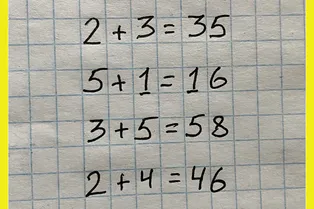 2 + 3 = 35
5 + 1 = 16
3 + 5 = 58
2 + 4 = 46